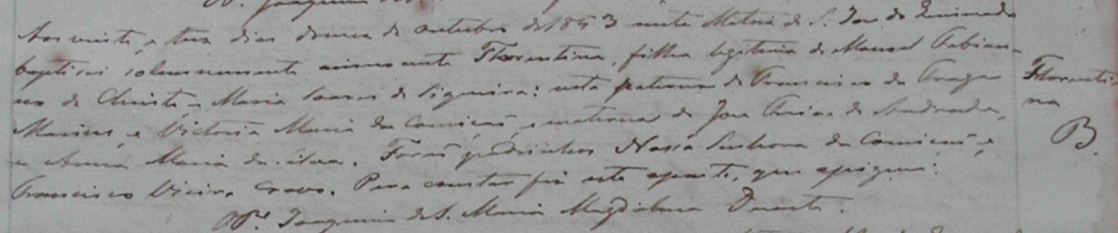 Aos vinte e tres dias do mez de outubro de 1853 nesta Matriz de S. Jose de Queimado
baptisei solemnemente a innocente Florentina, filha legitima de Manoel Fabian-
no de Christo e Maria Soares de Siqueira: neta paterna de Francisco da Fraga
Marins, e Victoria Maria da Conceicaõ, e materna de Jose Frias de Andrade,
e Anna Maria da Silva. Foraõ padrinhos Nossa Senhora da Conceicaõ, e
Francisco Vieira Cravo. Para constar fiz este assento, que assignei:
O Pe. Joaquim de S. Maria Magdalena Duarte.
Florenti
na
B.